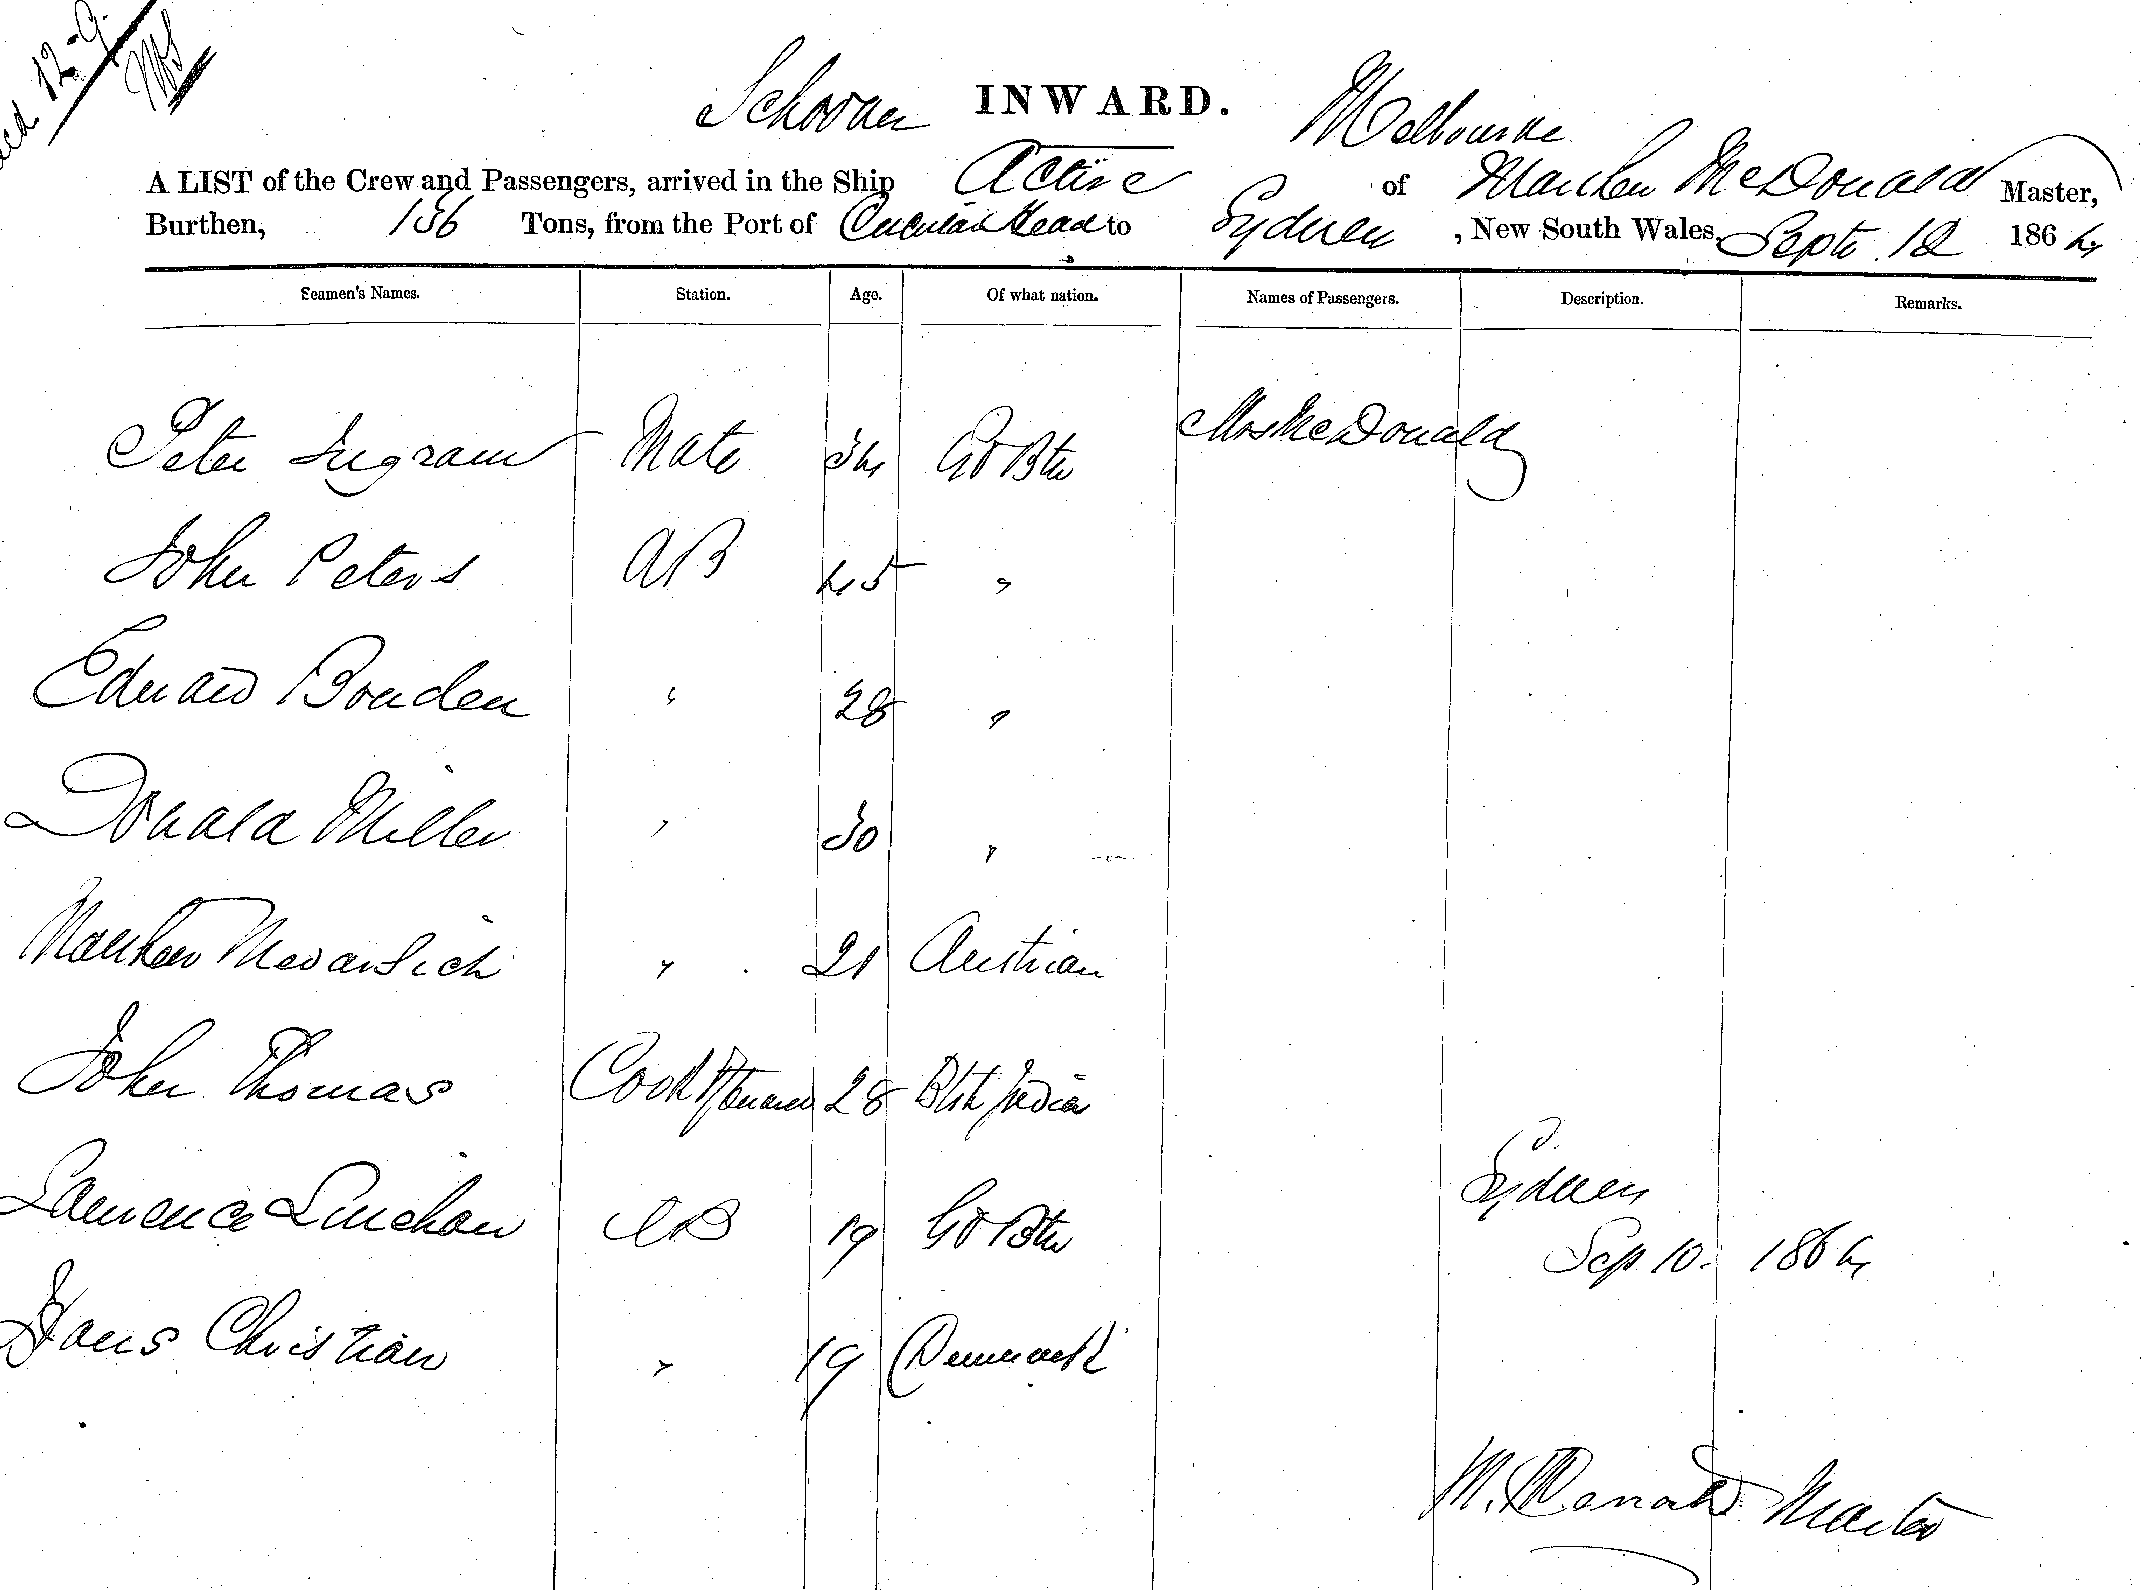 12-9
Schooner INWARD. Melbourne
A LIST of the Crew and Passengers, arrived in the Ship Active of McDonald Master,
Burthen, 136 Tons, from the Port of Circular Head to Sydney, New South Wales, Septr 12 1864
Seamen's Names. Station. Age. Of what nation. Names of Passengers. Description. Remarks.
Peter Ingram Mate 34 Gt Btn Mrs McDonald
John Peters AB 45 "
Edward Bowden " 28 "
Donald Miller " 30 "
" 21 Austrian
John Thomas Cook & Steward 28 Btsh India
Lawrence AB 19 Gt Btn Sydney
Sep 10. 1864
Hans Christian " 19 Denmark
M. McDonald Master